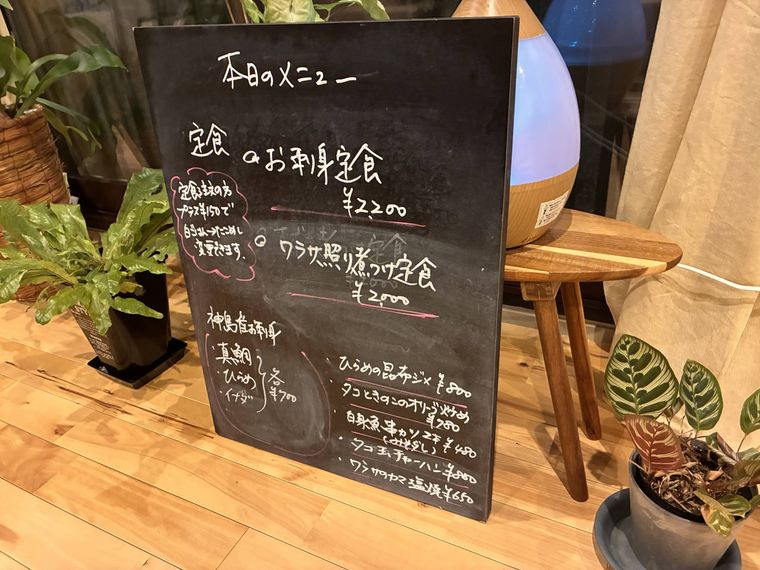 本日のメニュー
定食
お刺身定食
¥2200
定食注文の方
プラス¥150で
白ごはん→たこめし
変更できます。
ワラサ照り煮つけ定食
¥2,000
神島産お刺身
・真鯛
・ひらめ
・イナダ
各
¥700
・ひらめの昆布ジメ ¥800
・タコときのこのオリーブ炒め
¥780
・白身魚串カツ2本 ¥480
・タコ玉チャーハン ¥880
・ワラサのカマ塩焼 ¥650